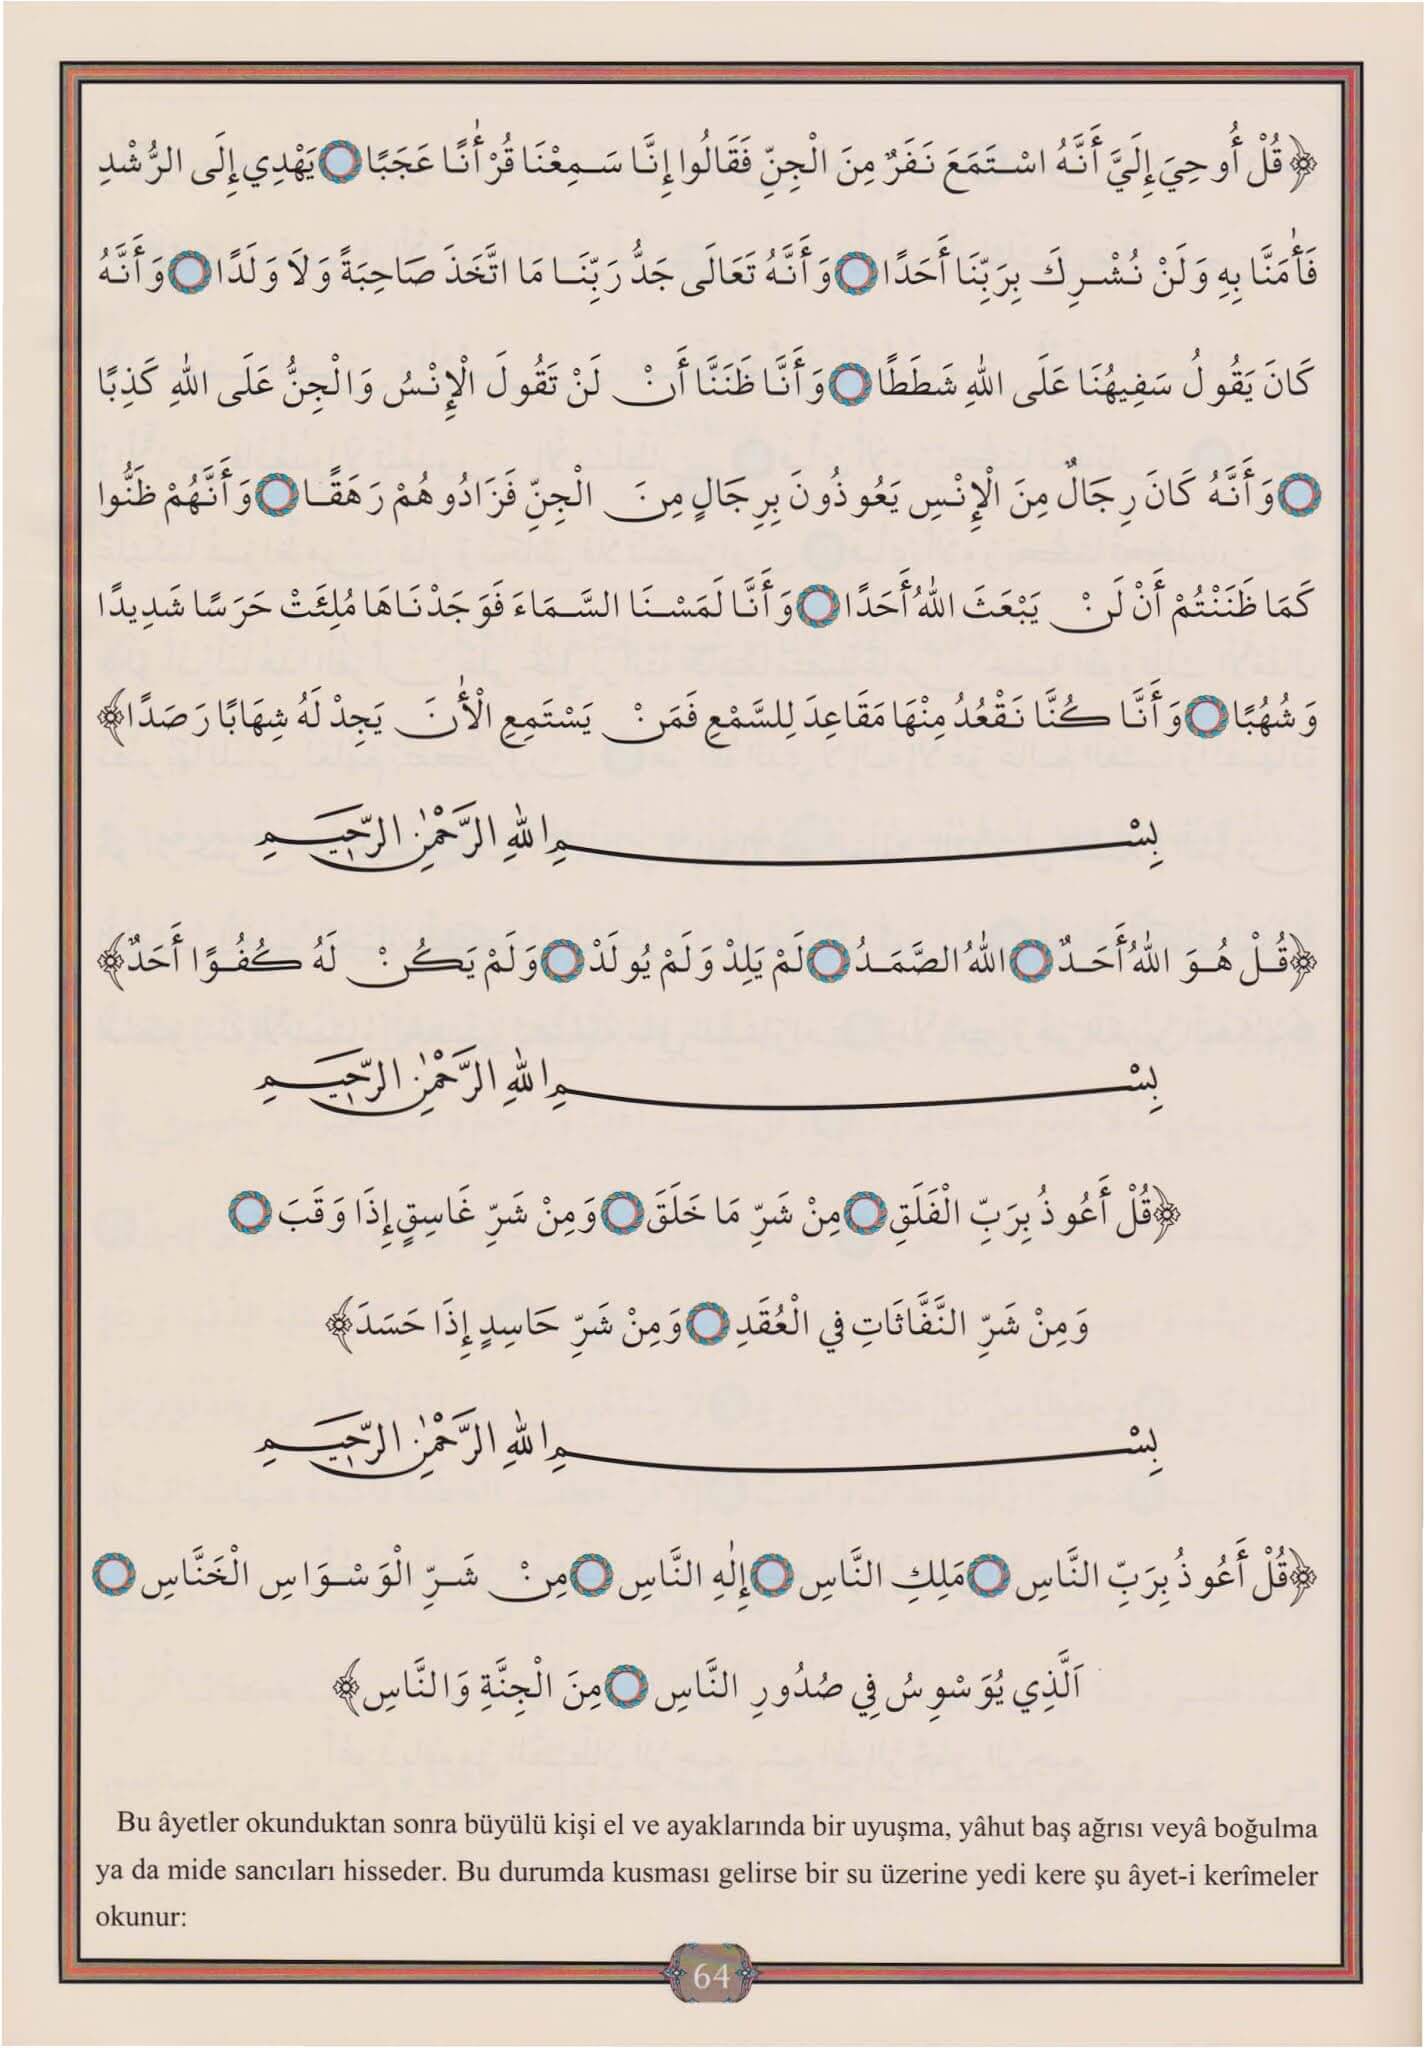 ﴿قُلْ أُوحِيَ إِلَيَّ أَنَّهُ اسْتَمَعَ نَفَرٌ مِنَ الْجِنِّ فَقَالُوا إِنَّا سَمِعْنَا قُرْاٰنًا عَجَبًا يَهْدِي إِلَى الرُّشْدِ
فَاٰمَنَّا بِهِ وَلَنْ نُشْرِكَ بِرَبِّنَا أَحَدًا وَأَنَّهُ تَعَالَى جَدُّ رَبِّنَا مَا اتَّخَذَ صَاحِبَةً وَلَا وَلَدًا وَأَنَّهُ
كَانَ يَقُولُ سَفِيهُنَا عَلَى اللهِ شَطَطًا وَأَنَّا ظَنَنَّا أَنْ لَنْ تَقُولَ الْإِنْسُ وَالْجِنُّ عَلَى اللهِ كَذِبًا
وَأَنَّهُ كَانَ رِجَالٌ مِنَ الْإِنْسِ يَعُوذُونَ بِرِجَالٍ مِنَ الْجِنِّ فَزَادُوهُمْ رَهَقًا وَأَنَّهُمْ ظَنُّوا
كَمَا ظَنَنْتُمْ أَنْ لَنْ يَبْعَثَ اللهُ أَحَدًا وَأَنَّا لَمَسْنَا السَّمَاءَ فَوَجَدْنَاهَا مُلِئَتْ حَرَسًا شَدِيدًا
وَشُهُبًا وَأَنَّا كُنَّا نَقْعُدُ مِنْهَا مَقَاعِدَ لِلسَّمْعِ فَمَنْ يَسْتَمِعِ الْاٰنَ يَجِدْ لَهُ شِهَابًا رَصَدًا﴾
بِسْمِ اللهِ الرَّحْمٰنِ الرَّحِيمِ
﴿قُلْ هُوَ اللهُ أَحَدٌ اَللهُ الصَّمَدُ لَمْ يَلِدْ وَلَمْ يُولَدْ وَلَمْ يَكُنْ لَهُ كُفُوًا أَحَدٌ﴾
بِسْمِ اللهِ الرَّحْمٰنِ الرَّحِيمِ
﴿قُلْ أَعُوذُ بِرَبِّ الْفَلَقِ مِنْ شَرِّ مَا خَلَقَ وَمِنْ شَرِّ غَاسِقٍ إِذَا وَقَبَ
وَمِنْ شَرِّ النَّفَّاثَاتِ فِي الْعُقَدِ وَمِنْ شَرِّ حَاسِدٍ إِذَا حَسَدَ﴾
بِسْمِ اللهِ الرَّحْمٰنِ الرَّحِيمِ
﴿قُلْ أَعُوذُ بِرَبِّ النَّاسِ مَلِكِ النَّاسِ إِلٰهِ النَّاسِ مِنْ شَرِّ الْوَسْوَاسِ الْخَنَّاسِ
اَلَّذِي يُوَسْوِسُ فِي صُدُورِ النَّاسِ مِنَ الْجِنَّةِ وَالنَّاسِ﴾
Bu âyetler okunduktan sonra büyülü kişi el ve ayaklarında bir uyuşma, yâhut baş ağrısı veyâ boğulma
ya da mide sancıları hisseder. Bu durumda kusması gelirse bir su üzerine yedi kere şu âyet-i kerîmeler
okunur:
64